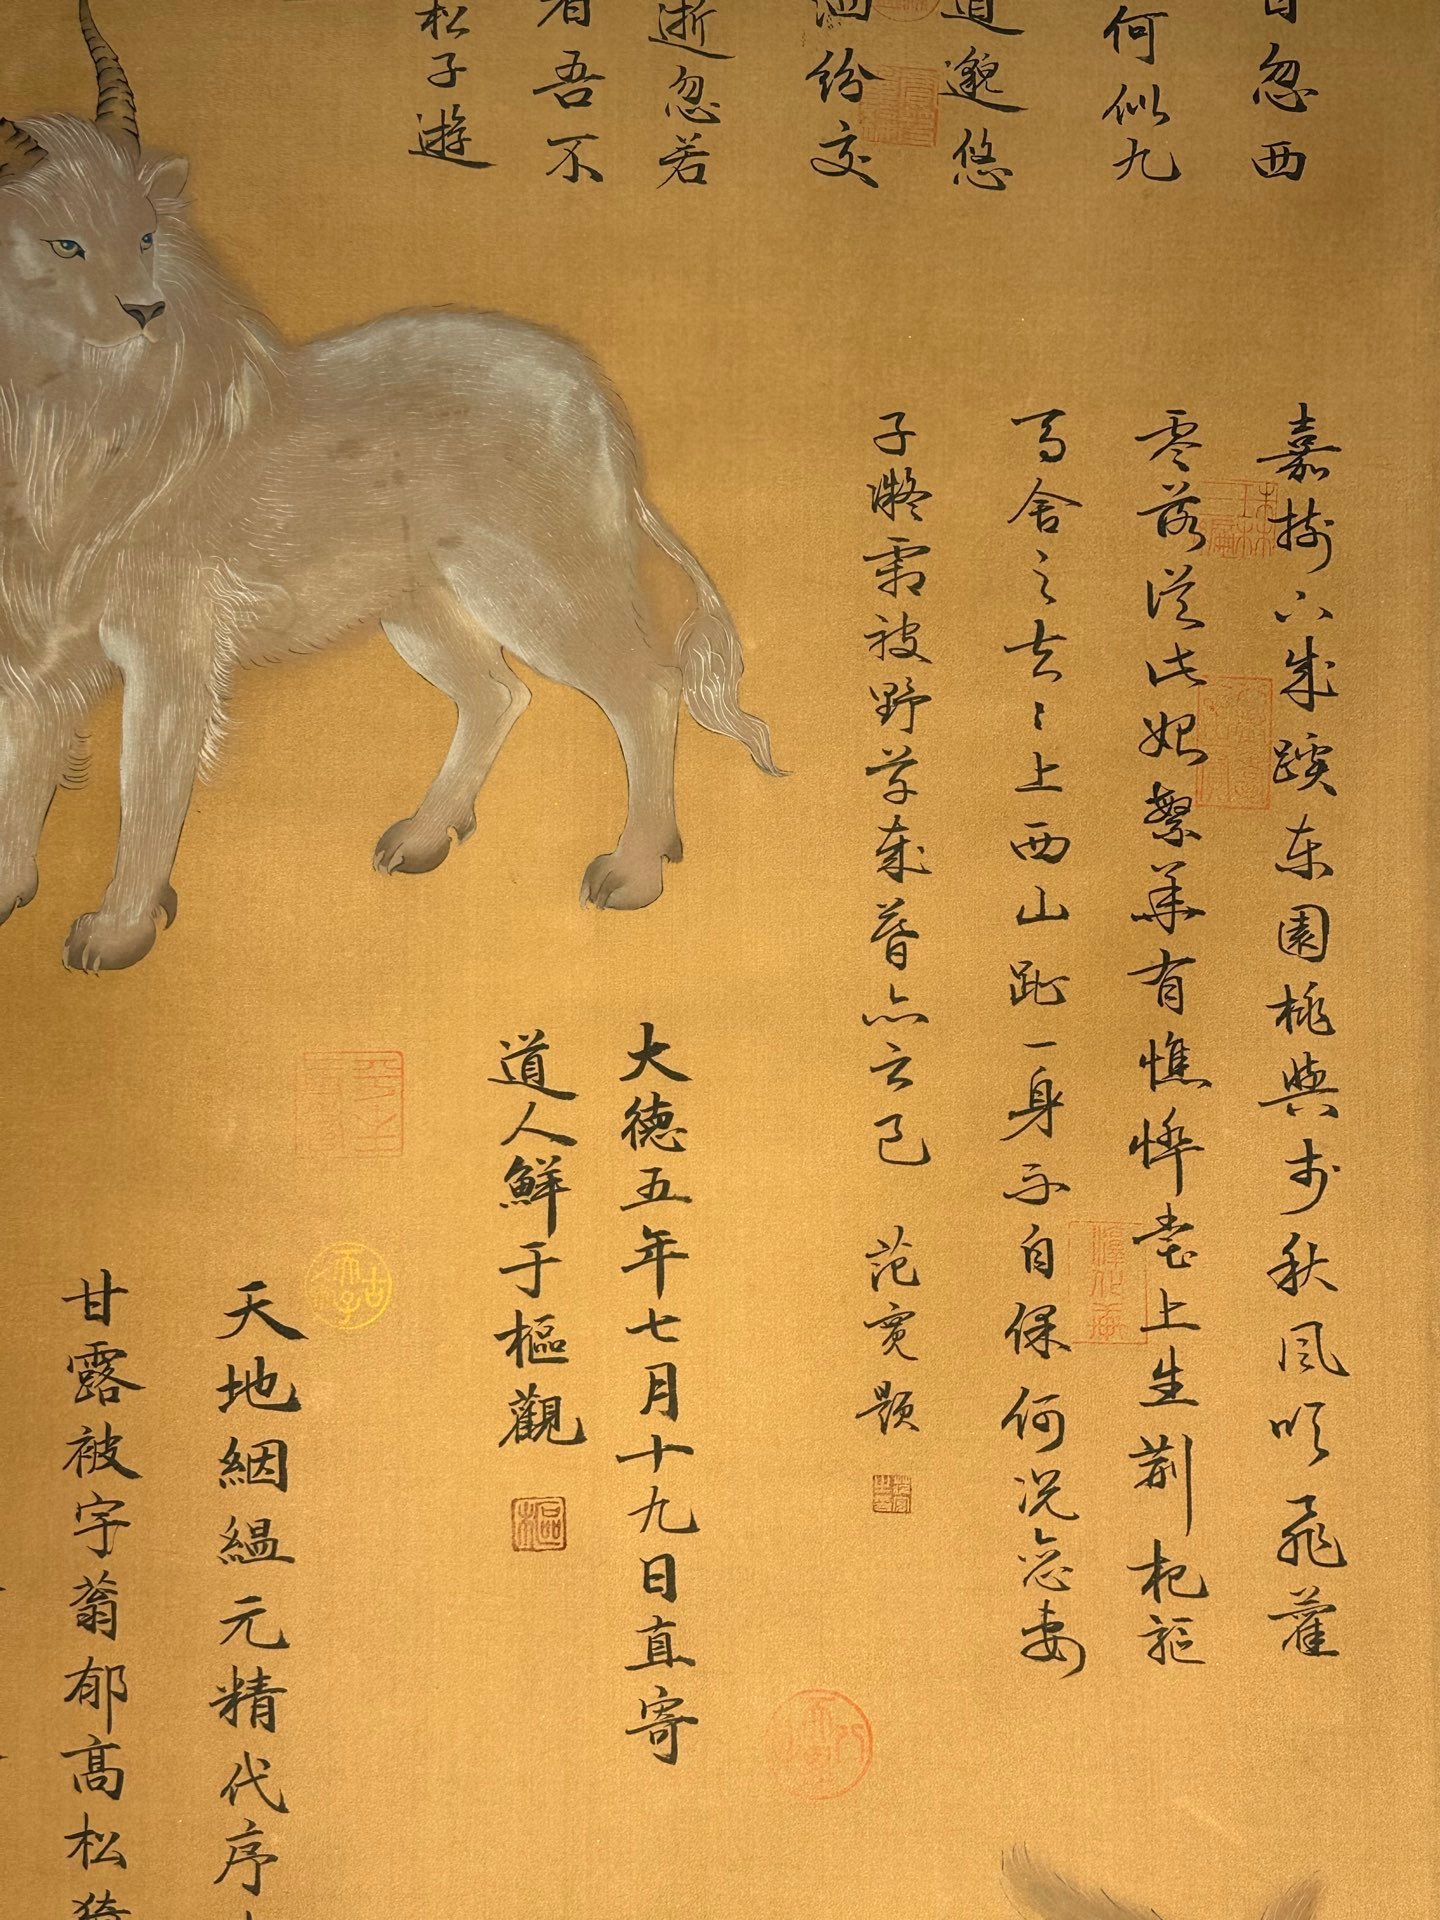 忽西
何似九
道邈悠
紛交
逝忽若
吾不
松子遊
嘉樹下成蹊東園桃與李秋風吹飛藿
零落從此始繁華有憔悴堂上生荊杞驅
馬舍之去去上西山趾一身不自保何況戀妻
子凝霜被野草歲暮亦云已 范寬題
大德五年七月十九日直寄
道人鮮于樞觀
樞
天地絪縕元精代序
甘露被宇蓊鬱高松